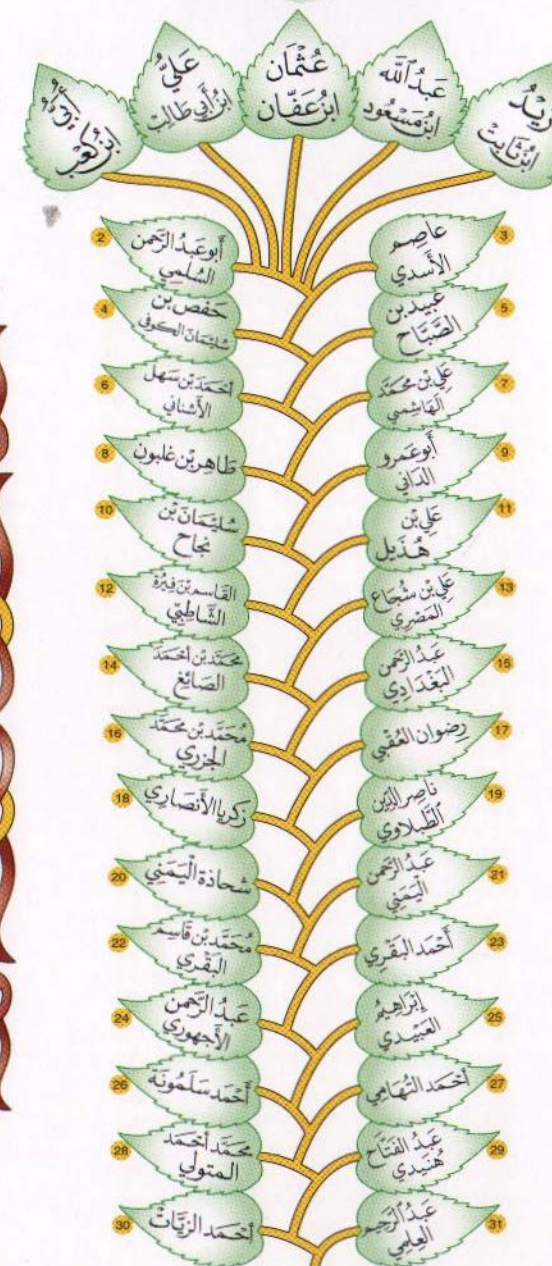 زَيْدُ
ابْنُ ثَابِتْ
عَبْدُ اللَّه
ابْنُ مَسْعُود
عُثْمَان
ابْنُ عَفَّان
عَلِيُّ
ابْنُ أَبِي طَالِبْ
أُبَيُّ
ابْنُ كَعْب
2
أبو عَبْدُ الرَّحمن
السُّلَمِي
3
عاصِم
الأَسدي
4
حَفْص بن
سُلَيْمَان الكوفي
5
عُبيد بن
الصَّبَّاح
6
أحْمَد بن سَهل
الأُشناني
7
عَلي بن محَمَّد
الهَاشِمي
8
طَاهِر بْن غلبُون
9
أبُو عَمرو
الدَّاني
10
سُلَيْمَانْ بْن
نجَاح
11
عَلي بْن
هُذَيل
12
القَاسِم بْن فِيْرُّة
الشَّاطِبِّي
13
عَلي بْن شجَاع
المَصْرِي
14
محَمَّد بْن أحْمَد
الصَّايِغ
15
عَبْدُ الرَّحمن
البَغْدَادِي
16
مُحَمَّد بْن محَمَّد
الجَزري
17
رِضوان العُقْبي
18
زكَريا الأنصَارِي
19
ناصِر الدِّين
الطَّبلاوي
20
شحاذة الْيَمَنِي
21
عَبْدُ الرَّحمن
اليَمَنِي
22
مُحَمَّد بْن قَاسِم
البَقْرِي
23
أحْمَد البَقَرِي
24
عَبْدُ الرَّحمن
الأجهُوري
25
إبْرَاهِيمُ
العَبِيدي
26
أحْمَد سَلَمُونَة
27
أحْمَد التِّهَامِي
28
محَمَّد أحمَد
المتولي
29
عَبْدُ الفَتَّاح
هُنَيدي
30
أحمَد الزيَّاتْ
31
عَبْدُ الرَّحِيم
العِلْمِي